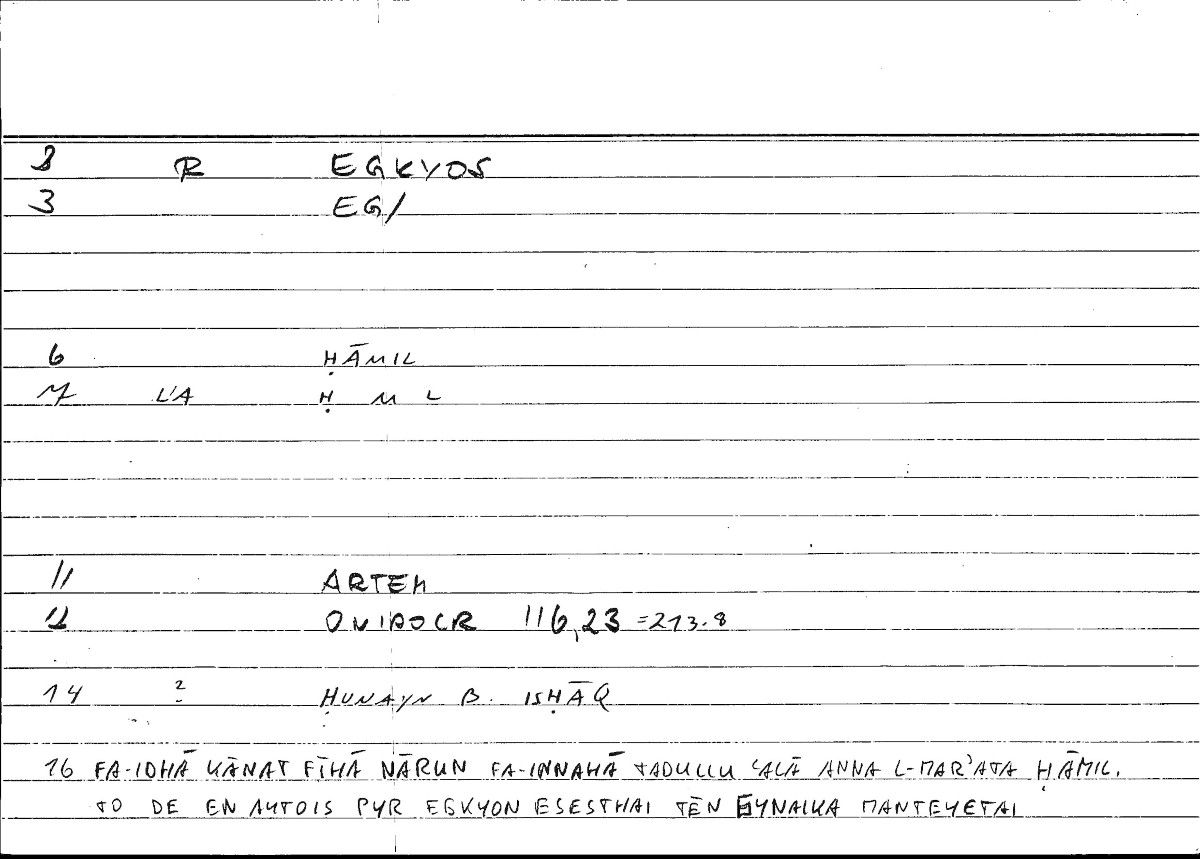 2 R EGKYOS
3 EG/
6 ḤĀMIL
7 L'A Ḥ M L
11 ARTEM
12 ONIROCR 116,23 =213.8
14 2 ḤUNAYN B. ISḤĀQ
16 FA-IDHĀ KĀNAT FĪHĀ NĀRUN FA-INNAHĀ TADULLU ʿALĀ ANNA L-MARʾATA ḤĀMIL.
TO DE EN AYTOIS PYR EGKYON ESESTHAI TĒN GYNAIKA MANTEYETAI